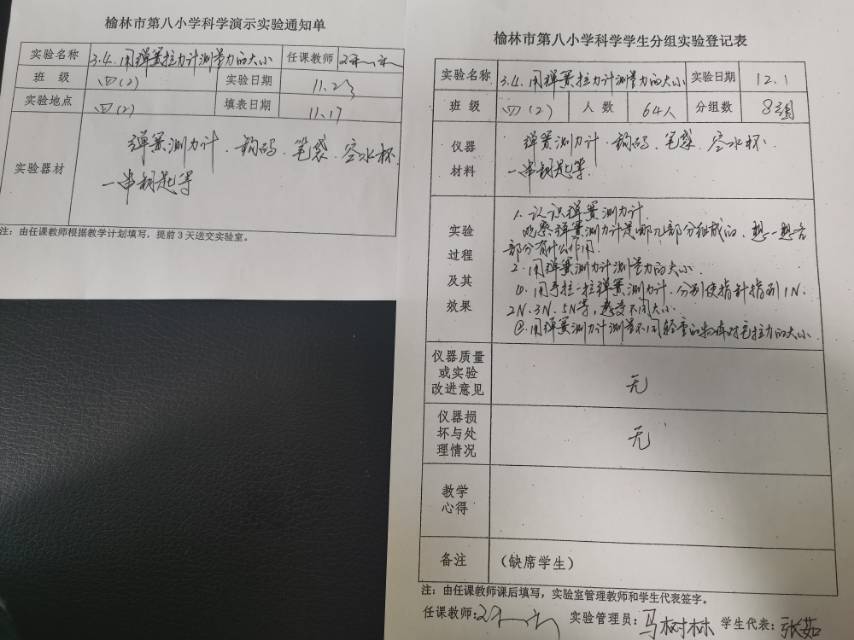 榆林市第八小学科学演示实验通知单
实验名称 3.4.用弹簧拉力计测量力的大小 任课教师
班 级 四(2) 实验日期 11.23
实验地点 四(2) 填表日期 11.17
实验器材
弹簧测力计、钩码、笔袋、空水杯、
一串钥匙等
注：由任课教师根据教学计划填写，提前3天送交实验室。
榆林市第八小学科学学生分组实验登记表
实验名称 3.4.用弹簧拉力计测量力的大小 实验日期 12.1
班 级 四(2) 人 数 64人 分组数 8组
仪器
材料
弹簧测力计、钩码、笔袋、空水杯、
一串钥匙等.
实验
过程
及其
效果
1.认识弹簧测力计
观察弹簧测力计是哪几部分组成的，想一想各
部分有什么作用
2.用弹簧测力计测量力的大小.
①用手拉一拉弹簧测力计，分别使指针指到1N、
2N、3N、5N等，感受不同大小
②用弹簧测力计测量不同轻重的物体对它拉力的大小
仪器质量
或实验
改进意见
无
仪器损
坏与处
理情况
无
教学
心得
备注 (缺席学生)
注：由任课教师课后填写，实验室管理教师和学生代表签字。
任课教师: 实验管理员: 马树林 学生代表: 张茹